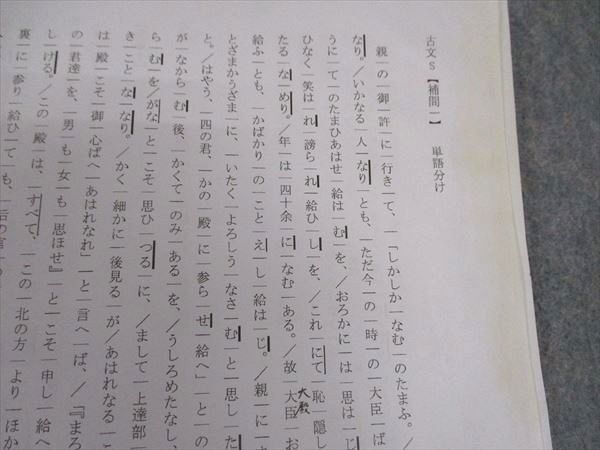 古文S【補問一】　単語分け
親｜の｜御｜許｜に｜行き｜て、｜「しかしか｜なむ｜のたまふ。／
なり。／いかなる｜人｜なり｜とも、｜ただ今｜の｜時｜の｜大臣｜ば
うに｜て｜のたまひあはせ｜給は｜む｜を、／おろかに｜は｜思は｜じ
ひなく｜笑は｜れ｜謗ら｜れ｜給ひ｜し｜を、／これ｜にて｜恥｜隠し
たる｜な｜めり。／年｜は｜四十余｜に｜なむ｜ある。／故｜大臣｜お
大殿
給ふ｜とも、｜かばかり｜の｜こと｜え｜し｜給は｜じ。／親｜に｜
とざまかうざま｜に、｜いたく｜よろしう｜なさ｜む｜と｜思し｜た
と。／はやう、｜四の君、｜かの｜殿｜に｜参ら｜せ｜給へ」｜と｜の
が｜なから｜む｜後、｜かくて｜のみ｜ある｜を、／うしろめたなし、
ら｜む｜を｜がな｜と｜こそ｜思ひ｜つる｜に、／まして｜上達部｜
き｜こと｜な｜なり。／かく｜細かに｜後見る｜が｜あはれなる｜こ
は｜殿｜こそ｜御｜心ばへ｜あはれなれ」｜と｜言へ｜ば、／『まろ
の｜君達｜を、｜男｜も｜女｜も｜思ほせ』｜と｜こそ｜申し｜給へ
し｜ける。／この｜殿｜は、｜すべて、｜この｜北の方｜より｜ほか
裏｜に｜参り｜給ひ｜て｜も、｜后の宮｜の